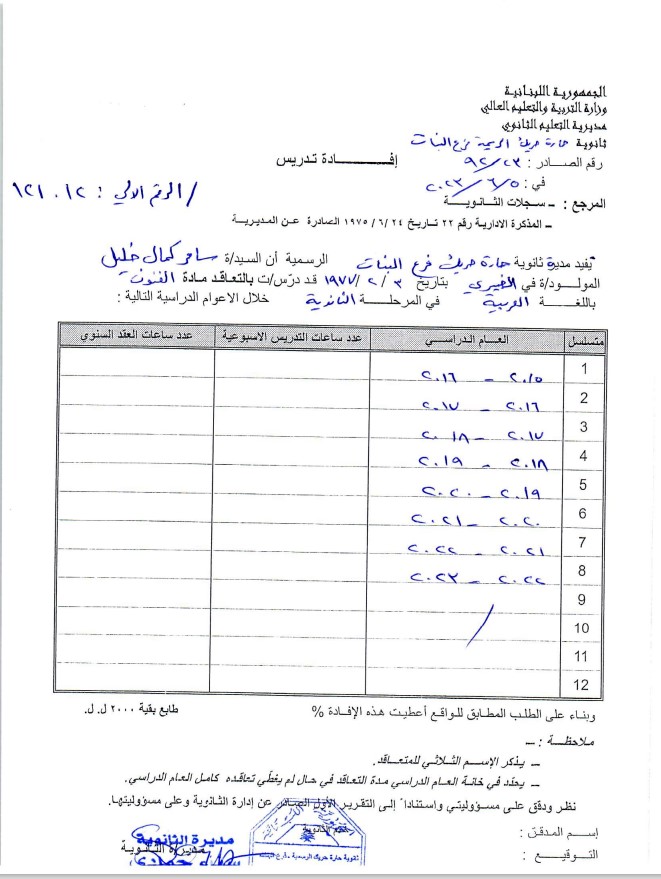 الجمهورية اللبنانية
وزارة التربية والتعليم العالي
مديرية التعليم الثانوي
ثانوية حارة حريك الرسمية فرع البنات
رقم الصادر : ٩٢/٢٣
إفادة تدريس
في : ٢٠٢٣/٦/٥
/ الرقم الآلي : ١٢١٠١٢
المرجع : ـ سجلات الثانوية
ـ المذكرة الادارية رقم ٢٢ تاريخ ١٩٧٥/٦/٢٤ الصادرة عن المديرية
تفيد مديرة ثانوية حارة حريك فرع البنات الرسمية أن السيد/ة سامر كمال خليل
المولود/ة في الغبيري بتاريخ ٣ / ٢ / ١٩٧٧ قد درّس/ت بالتعاقد مادة الفنون
باللغة العربية في المرحلة الثانوية خلال الاعوام الدراسية التالية :
متسلسل العام الدراسي عدد ساعات التدريس الاسبوعية عدد ساعات العقد السنوي
1 ٢٠١٥ ـ ٢٠١٦
2 ٢٠١٦ ـ ٢٠١٧
3 ٢٠١٧ ـ ٢٠١٨
4 ٢٠١٨ ـ ٢٠١٩
5 ٢٠١٩ ـ ٢٠٢٠
6 ٢٠٢٠ ـ ٢٠٢١
7 ٢٠٢١ ـ ٢٠٢٢
8 ٢٠٢٢ ـ ٢٠٢٣
9
10
11
12
وبناء على الطلب المطابق للواقع أعطيت هذه الإفادة %
طابع بقية ٢٠٠٠ ل.ل.
ملاحظة : ـ
ـ يذكر الإسم الثلاثي للمتعاقد.
ـ يحدّد في خانة العام الدراسي مدة التعاقد في حال لم يغطّي تعاقده كامل العام الدراسي.
نظر ودقق على مسؤوليتي واستناداً إلى التقرير الأول الصادر عن إدارة الثانوية وعلى مسؤوليتها.
إسم المدقق :
ختم الثانوية
مديرة الثانوية
التوقيع :
ثانوية حارة حريك الرسمية ـ فرع البنات
مديرة الثانوية